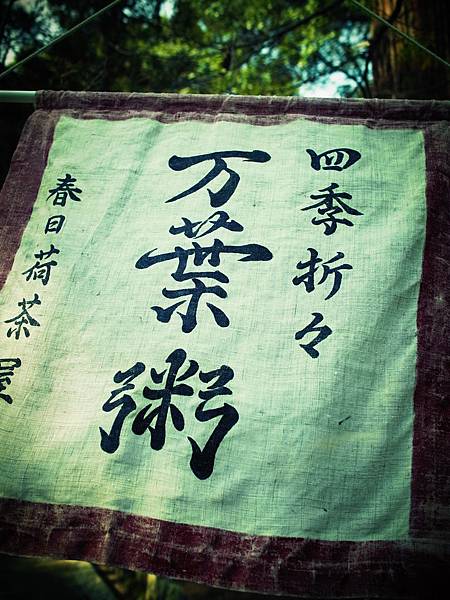 四季折々
万葉粥
春日荷茶屋